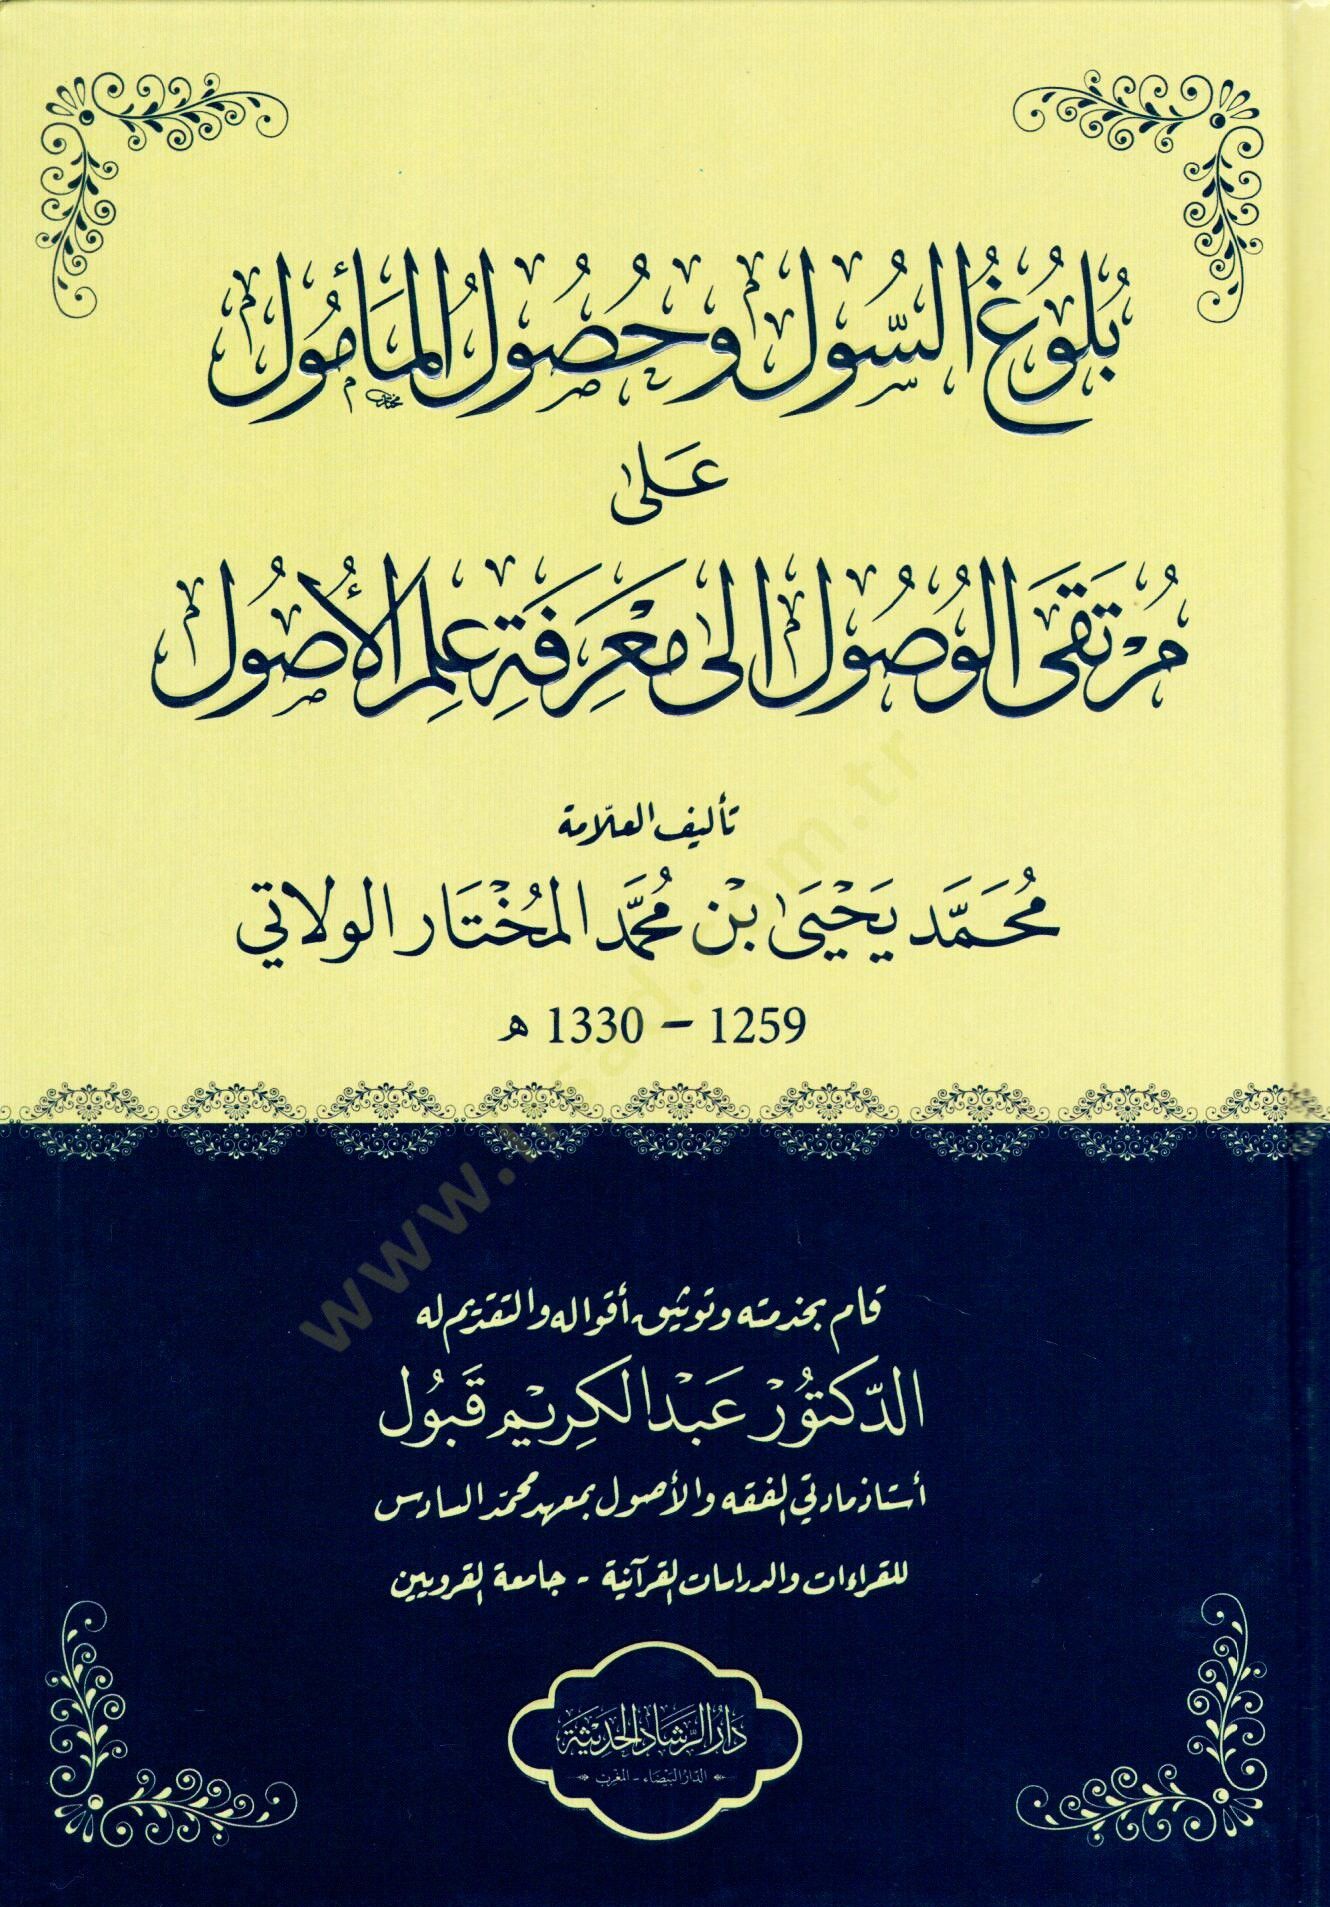 بُلُوغُ السُّولِ وَحُصُولُ المَأْمُولِ
عَلَى
مُرْتَقَى الوُصُولِ إِلَى مَعْرِفَةِ عِلْمِ الأُصُولِ
تأليف العلّامة
مُحَمَّد يَحْيَى بْن مُحَمَّد المُخْتَار الولاتي
1259 – 1330 هـ
قام بخدمته وتوثيق أقواله والتقديم له
الدّكتُورْ عَبْد الكَرِيم قَبُول
أستاذ مادتي الفقه والأصول بمعهد محمّد السادس
للقراءات والدراسات القرآنية - جامعة القرويين
دَارُ الرَّشَادِ الحَدِيْثَة
الدَّار البَيْضَاء - المَغْرِب